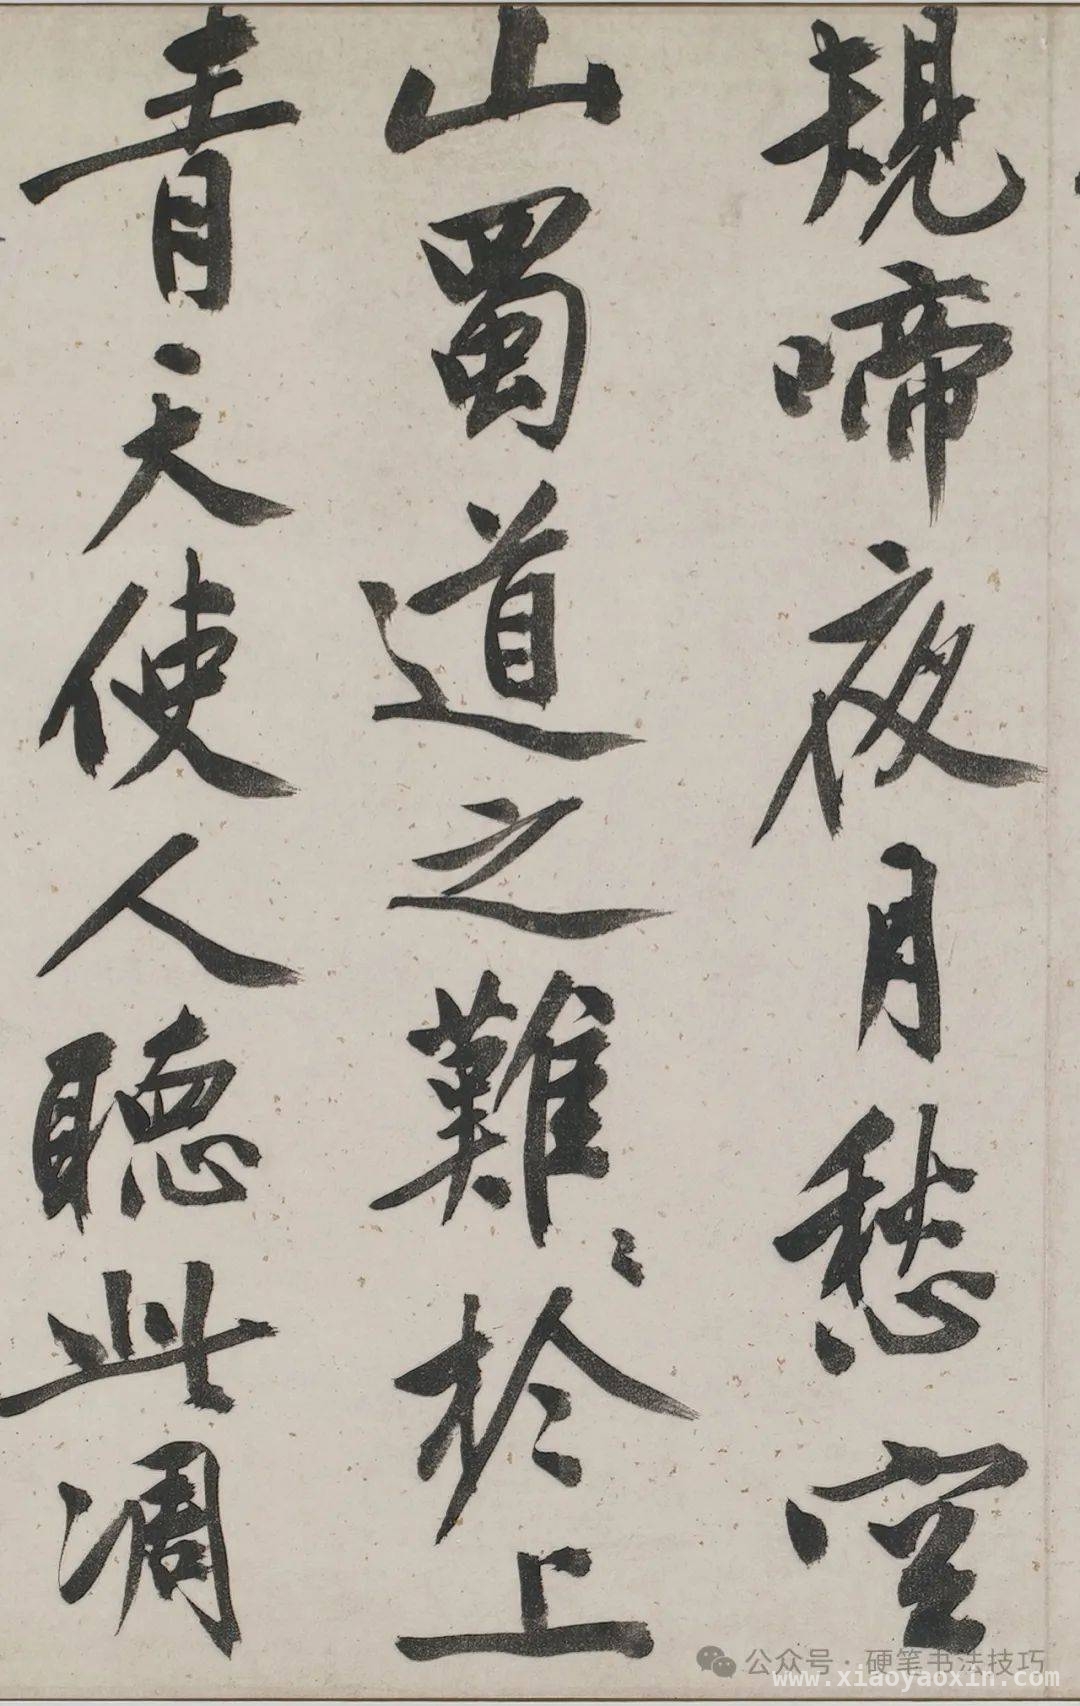 規啼夜月愁空
山蜀道之難〻於上
青天使人聽此凋
公众号·硬笔书法技巧
www.xiaoyaoxin.com